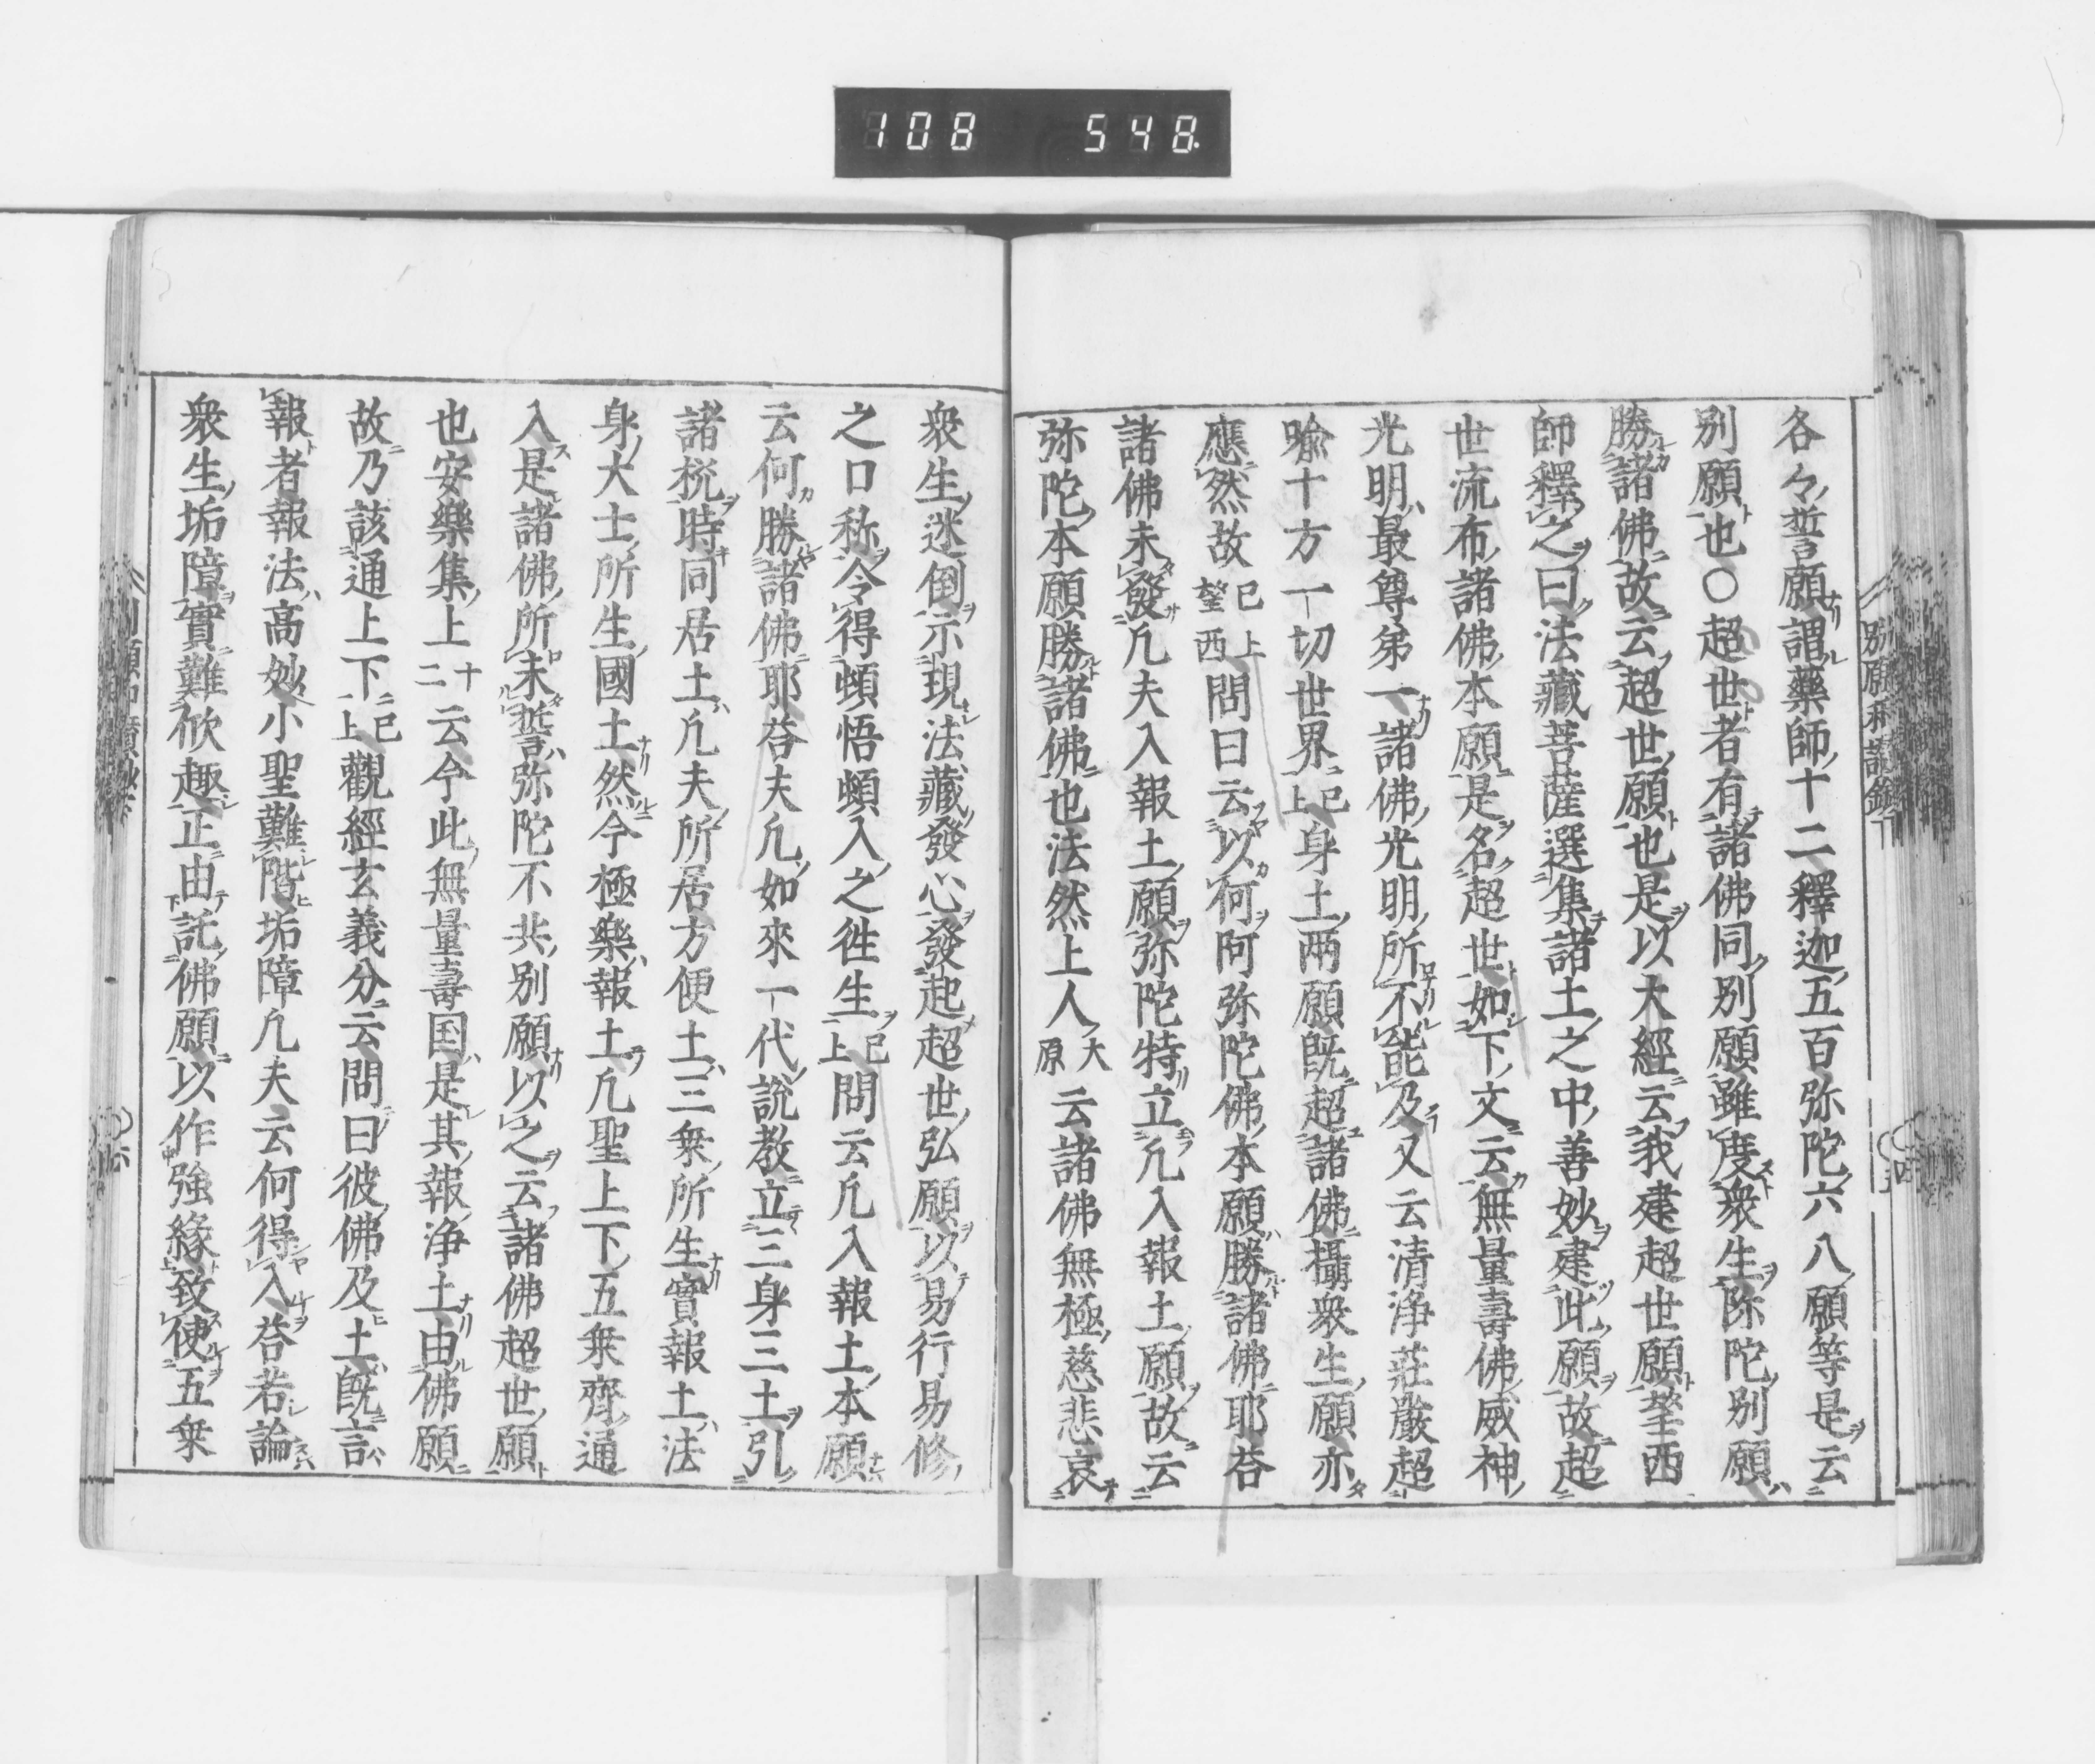 108 548
各々誓願謂藥師十二釋迦五百弥陀六八願等是云
别願也○超世者有諸佛同别願雖度衆生弥陀别願
勝諸佛故云超世願也是以大經云我建超世願望西
師釋之曰法藏菩薩選集諸土之中善妙建此願故超
世流布諸佛本願是名超世如下文云無量壽佛威神
光明最尊第一諸佛光明所不能及又云清浄莊嚴超
喩十方一切世界已上身土兩願既超諸佛攝衆生願亦
應然故已上望西問曰云以何阿弥陀佛本願勝諸佛耶荅
諸佛未發凢夫入報土願弥陀特立凢入報土願故云
弥陀本願勝諸佛也法然上人大原云諸佛無極慈悲哀
衆生迷倒示現法藏發心發起超世弘願以易行易修
之口称令得頓悟頓入之徃生已上問云凢入報土本願
云何勝諸佛耶荅夫凢如來一代說教立三身三土引
諸梲時同居土凢夫所居方便土三乗所生實報土法
身大士所生國土然今極樂報土凢聖上下五乗齊通
入是諸佛所未誓弥陀不共别願以之云諸佛超世願
也安樂集上十二云今此無量壽国是其報浄土由佛願
故乃該通上下已上觀經玄義分云問曰彼佛及土既言
報者報法高妙小聖難階垢障凢夫云何得入荅若論
衆生垢障實難欣趣正由託佛願以作強緣致使五乗